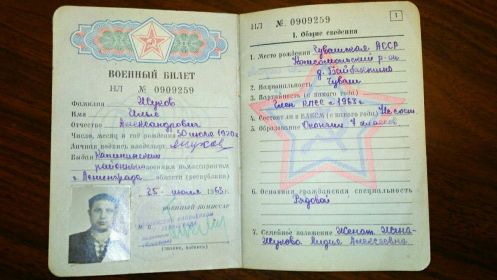 ВОЕННЫЙ БИЛЕТ
НЛ № 0909259
Фамилия Жуков
Имя
Отчество Александрович
Число, месяц и год рождения 30 июля 1920
Личная подпись владельца Жуков
Выдан Калининским
районным военным комиссариатом
г. Ленинграда области (республики)
25 июля 1963 г.
ВОЕННЫЙ КОМИССАР
М. П.
(звание, подпись)
НЛ № 0909259
1
I. Общие сведения
1. Место рождения Чувашская АССР
Комсомольский р-н
д.
2. Национальность Чуваш
3. Партийность (с какого года)
Член КПСС с
4. Состоит ли в ВЛКСМ (с какого года) Не сост.
5. Образование Окончил 4 классов
6. Основная гражданская специальность
Рядовой
7. Семейное положение Женат. Жена-
Жукова Лидия Алексеевна